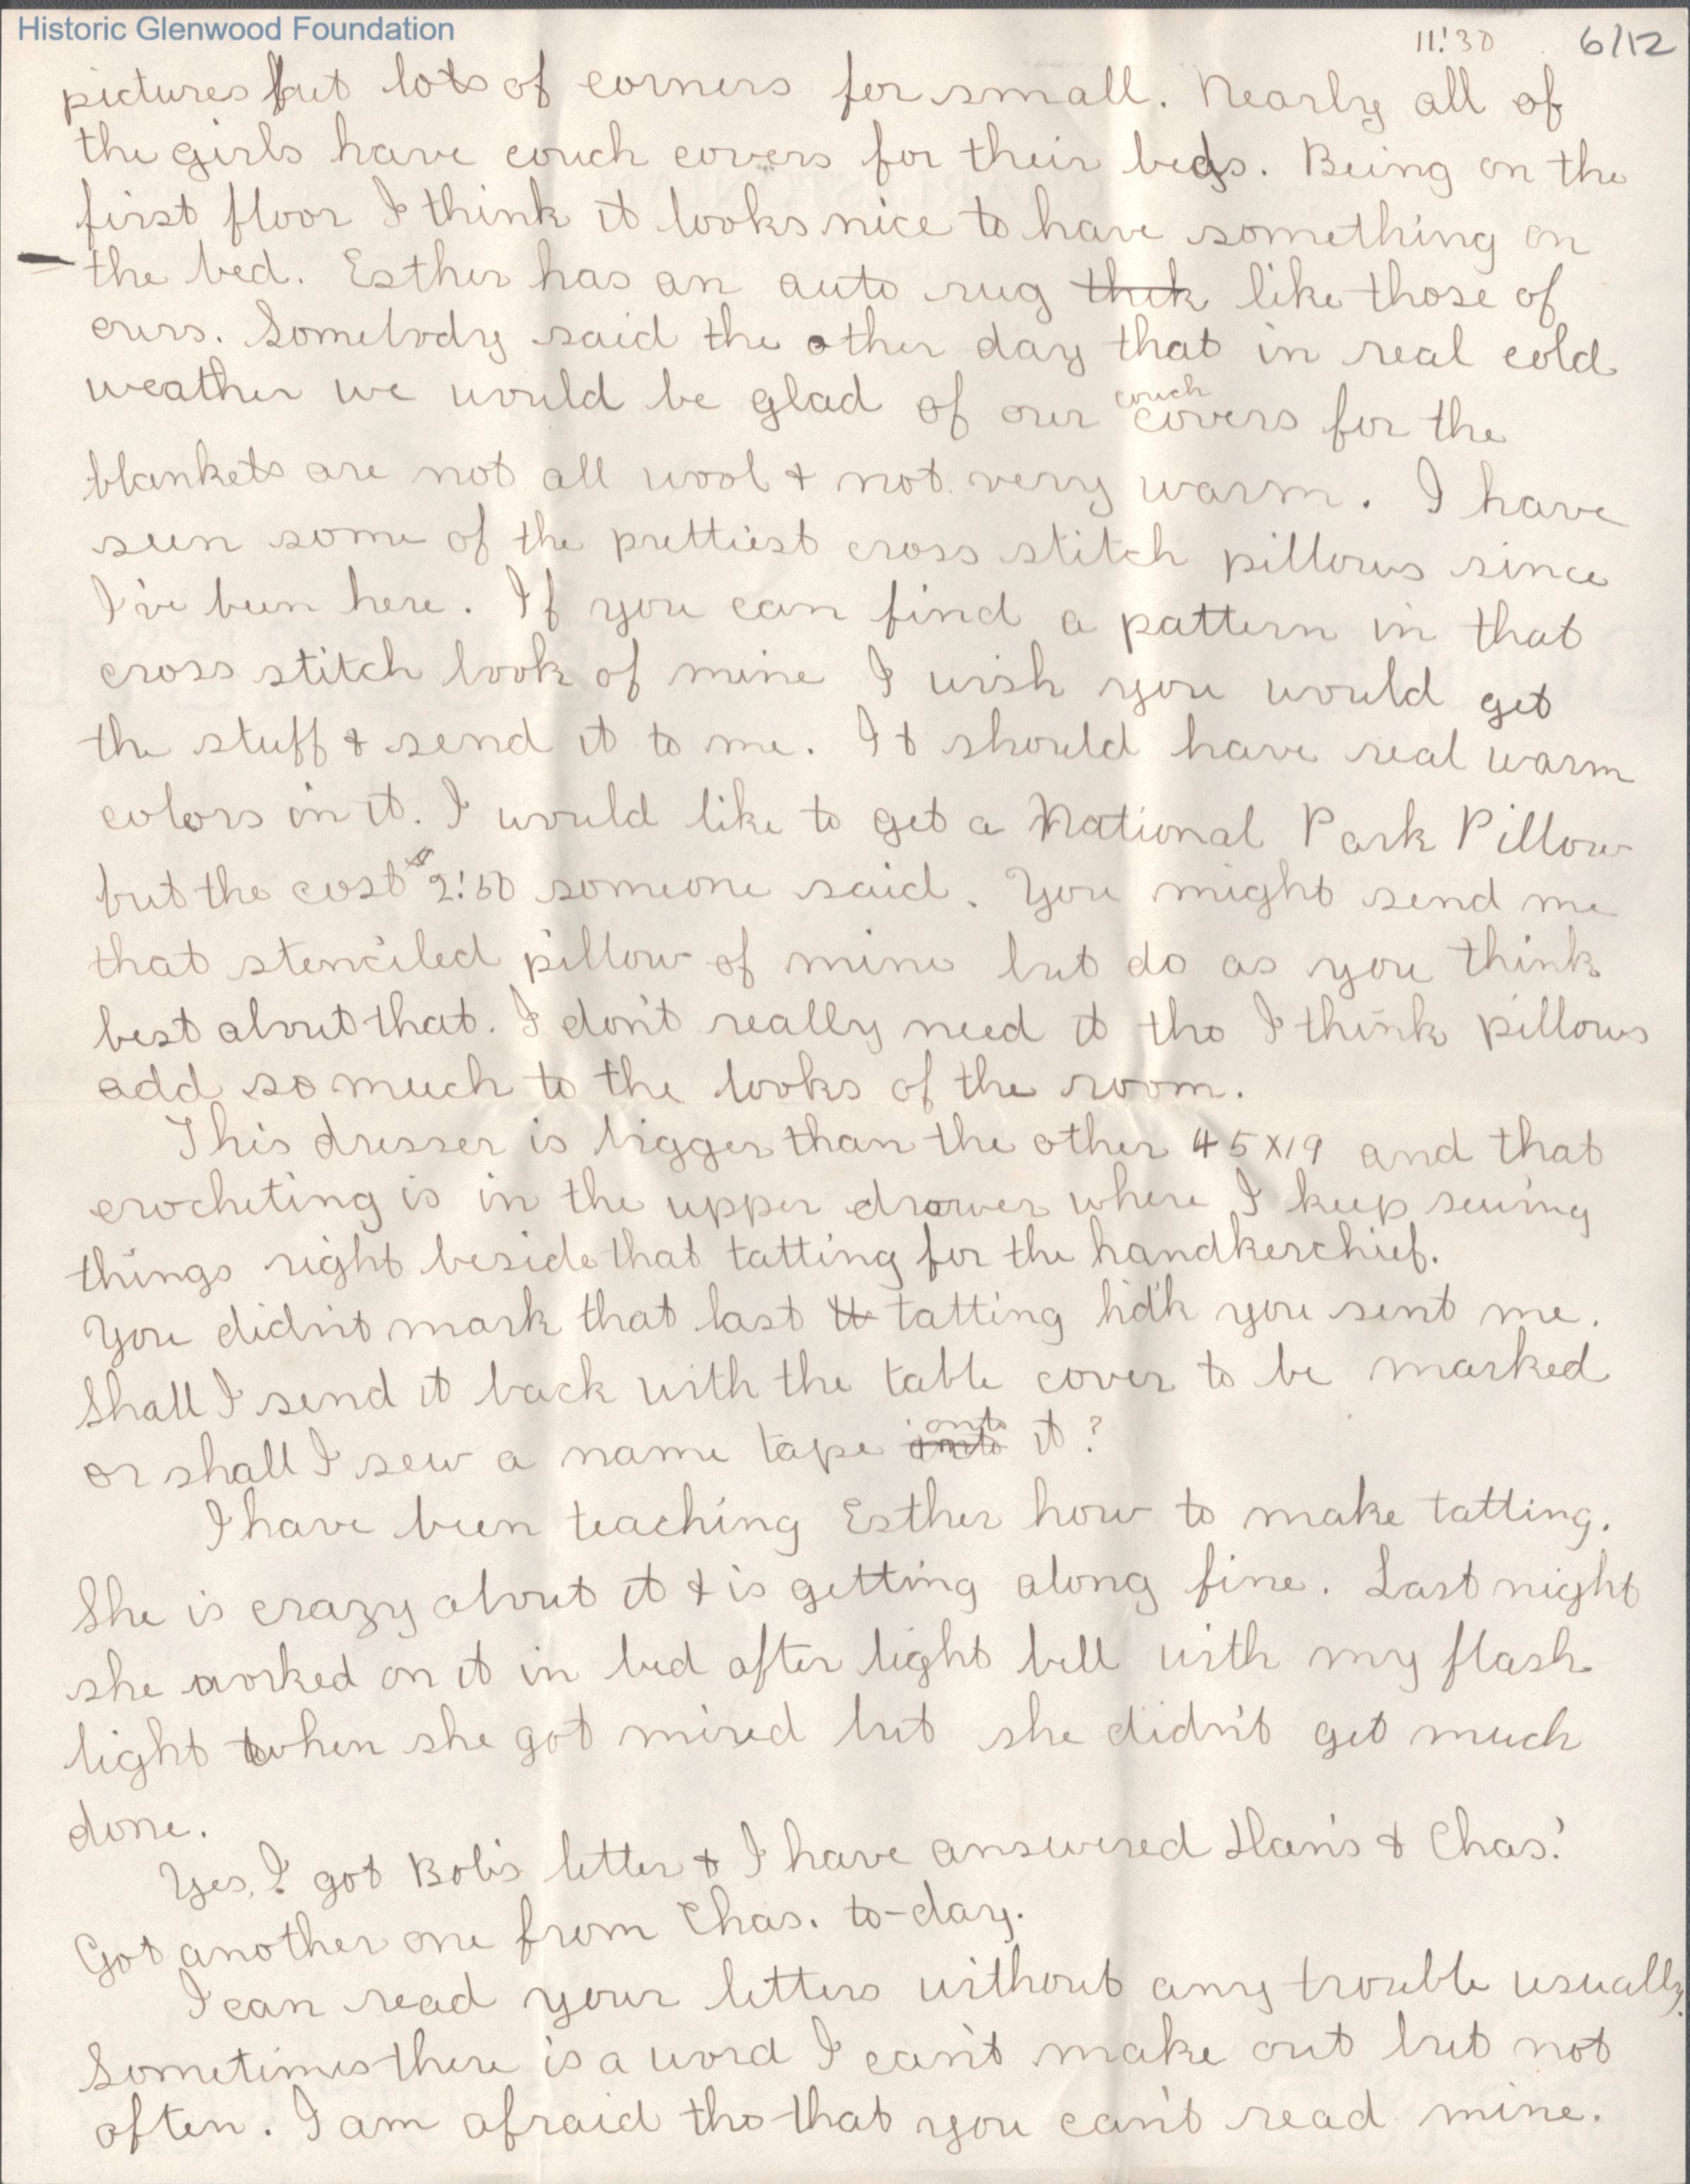 Historic Glenwood Foundation
11:30 6/12
pictures but lots of corners for small. Nearly all of
the girls have couch covers for their beds. Being on the
first floor I think it looks nice to have something on
the bed. Esther has an auto rug like those of
ours. Somebody said the other day that in real cold
weather we would be glad of our couch covers for the
blankets are not all wool & not very warm. I have
seen some of the prettiest cross stitch pillows since
I've been here. If you can find a pattern in that
cross stitch book of mine I wish you would get
the stuff & send it to me. It should have real warm
colors in it. I would like to get a National Park Pillow
but the cost $2.50 someone said. You might send me
that stenciled pillow of mine but do as you think
best about that. I don't really need it tho I think pillows
add so much to the looks of the room.
This dresser is bigger than the other 45X19 and that
crocheting is in the upper drawer where I keep sewing
things right beside that tatting for the handkerchief.
You didn't mark that last tatting hd'k you sent me.
Shall I send it back with the table cover to be marked
or shall I sew a name tape onto it?
I have been teaching Esther how to make tatting.
She is crazy about it & is getting along fine. Last night
she worked on it in bed after light bell with my flash
light when she got mixed but she didn't get much
done.
Yes, I got Bob's letter & I have answered & Chas.'
Got another one from Chas. to-day.
I can read your letters without any trouble usually.
Sometimes there is a word I can't make out but not
often. I am afraid tho that you can't read mine.